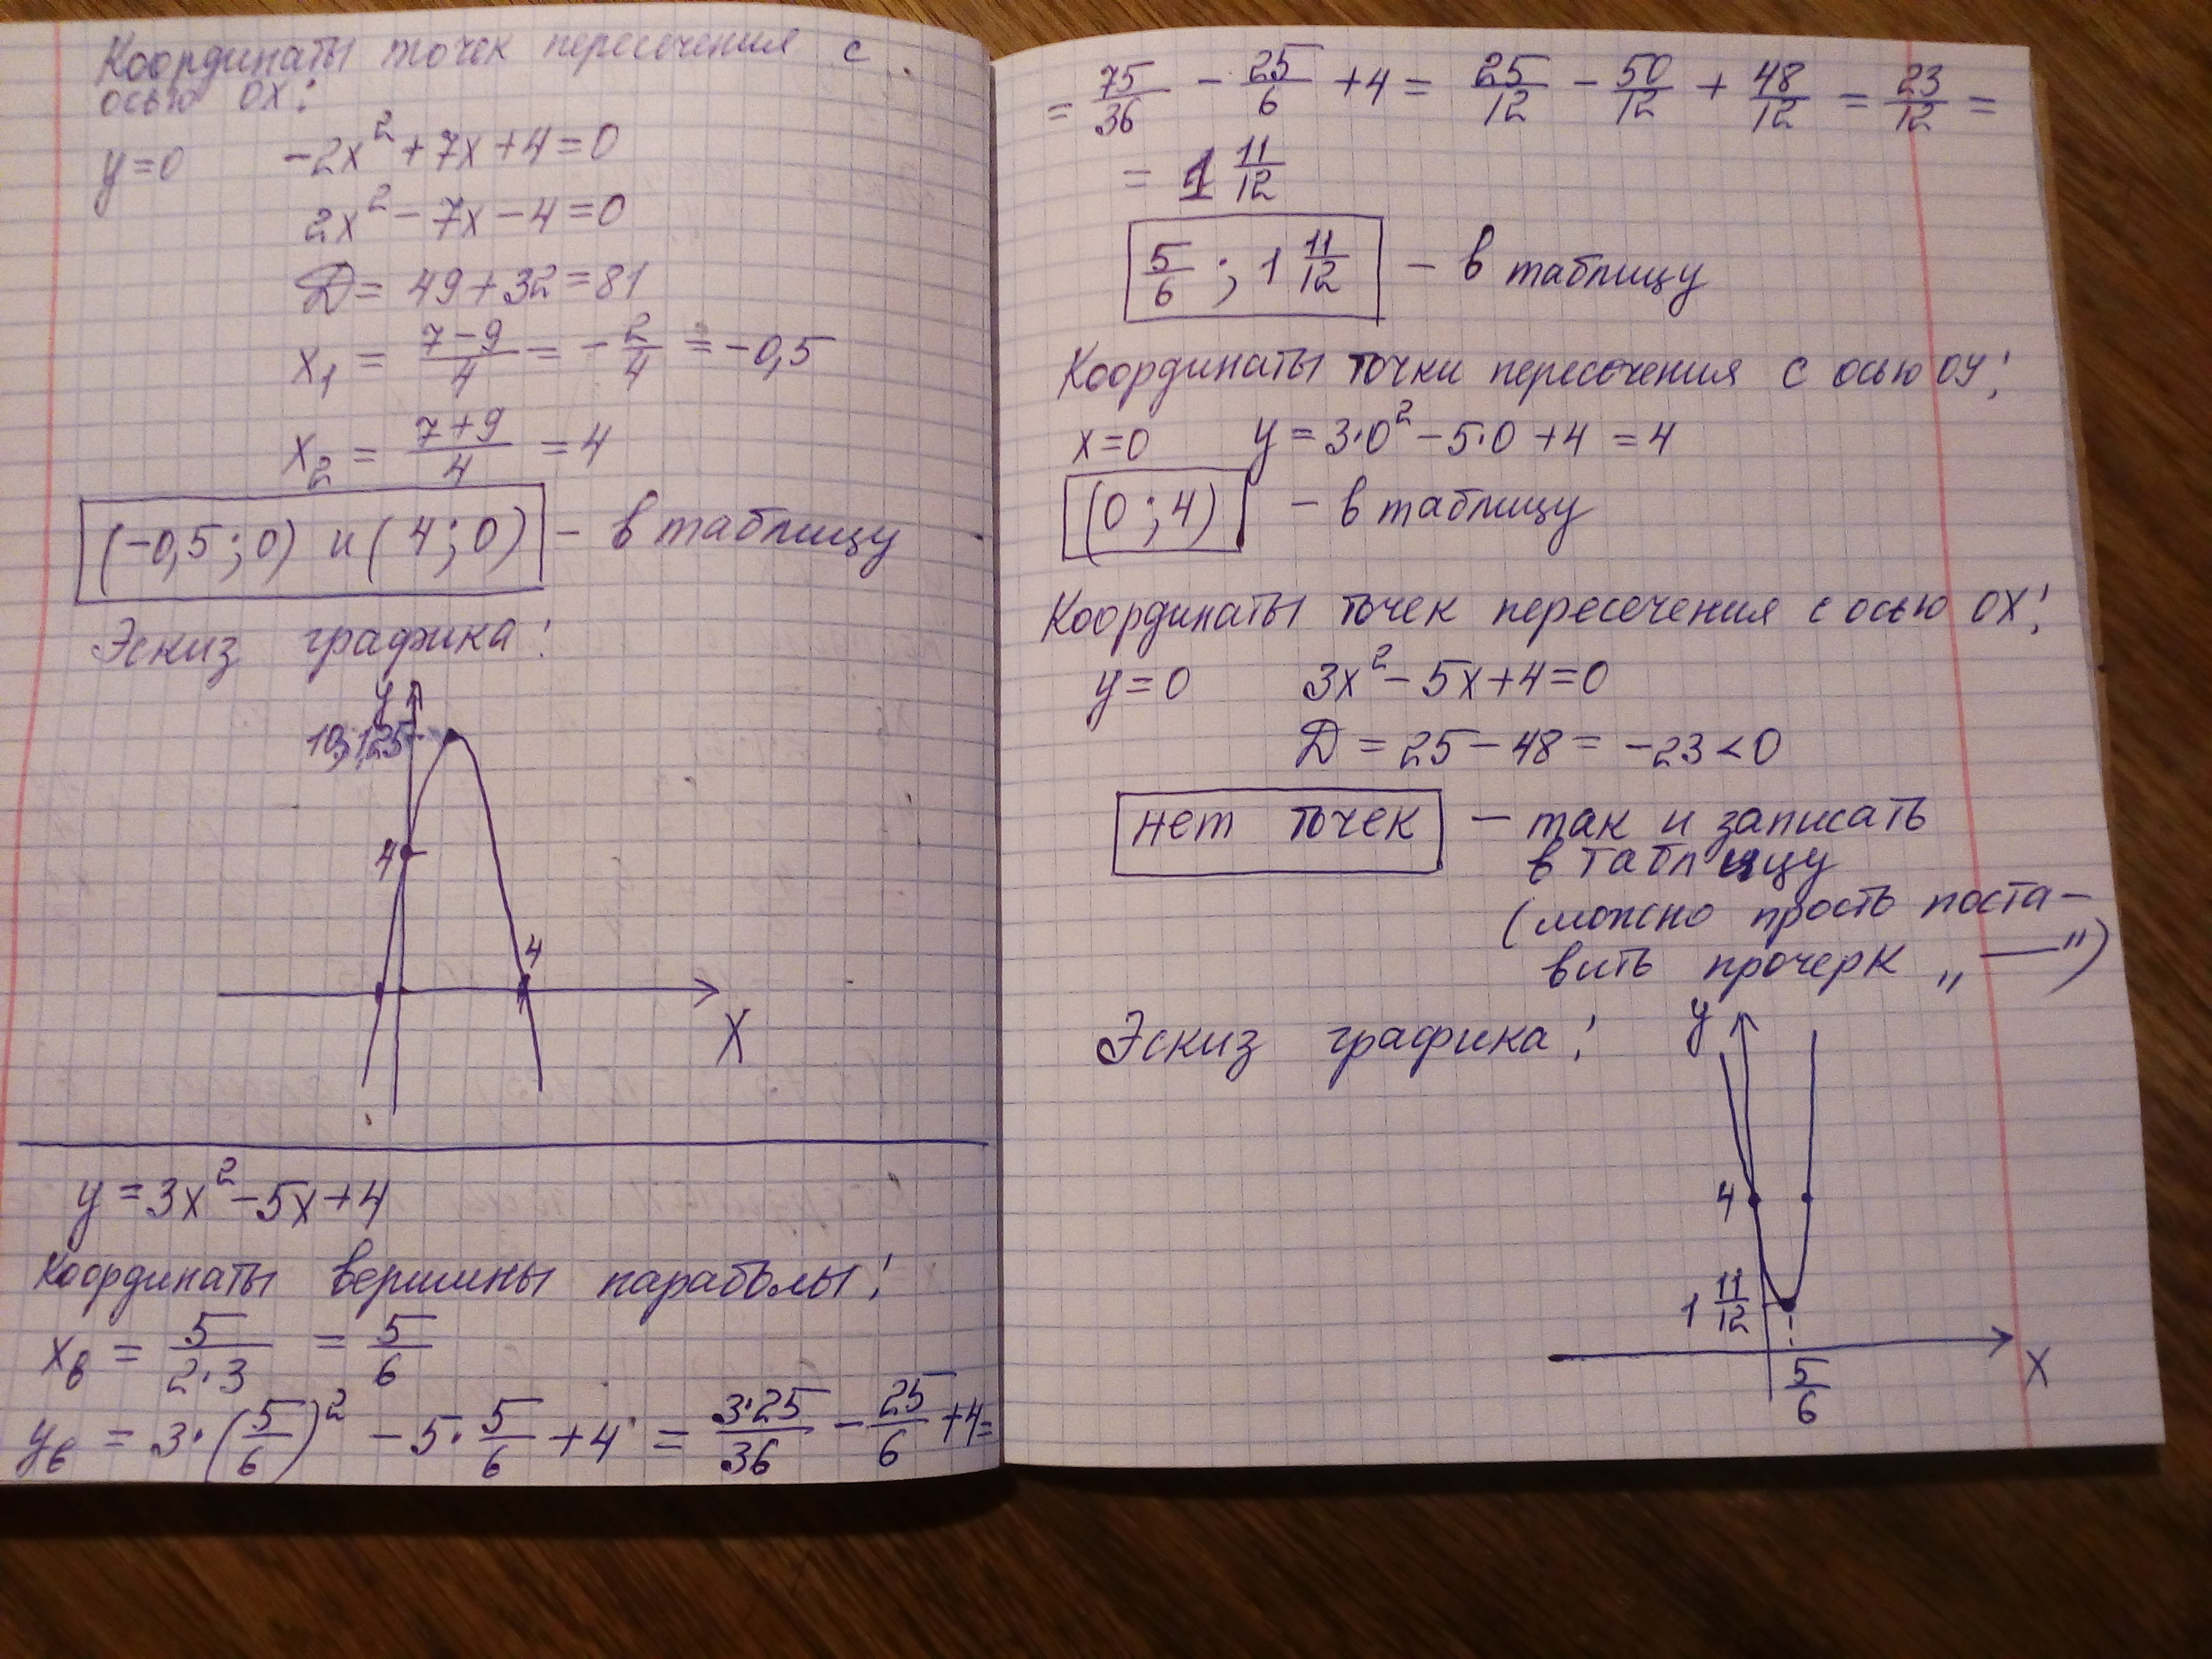 Координаты точек пересечения с
осью OX:
y=0 -2x²+7x+4=0
2x²-7x-4=0
D= 49+32=81
x₁ = (7-9)/4 = -2/4 = -0,5
x₂ = (7+9)/4 = 4
(-0,5; 0) и (4; 0) - в таблицу
Эскиз графика:
y
10,125
4
4
X
y=3x²-5x+4
Координаты вершины параболы:
xв = 5/(2·3) = 5/6
yв = 3·(5/6)² - 5·5/6 + 4 = (3·25)/36 - 25/6 + 4 =
= 75/36 - 25/6 + 4 = 25/12 - 50/12 + 48/12 = 23/12 =
= 1 11/12
5/6; 1 11/12 - в таблицу
Координаты точки пересечения с осью OY:
x=0 y=3·0²-5·0+4=4
(0; 4) - в таблицу
Координаты точек пересечения с осью OX:
y=0 3x²-5x+4=0
D = 25-48 = -23<0
нет точек - так и записать
в таблицу
(можно прость поста-
вить прочерк „—")
Эскиз графика:
y
4
1 11/12
5/6
X